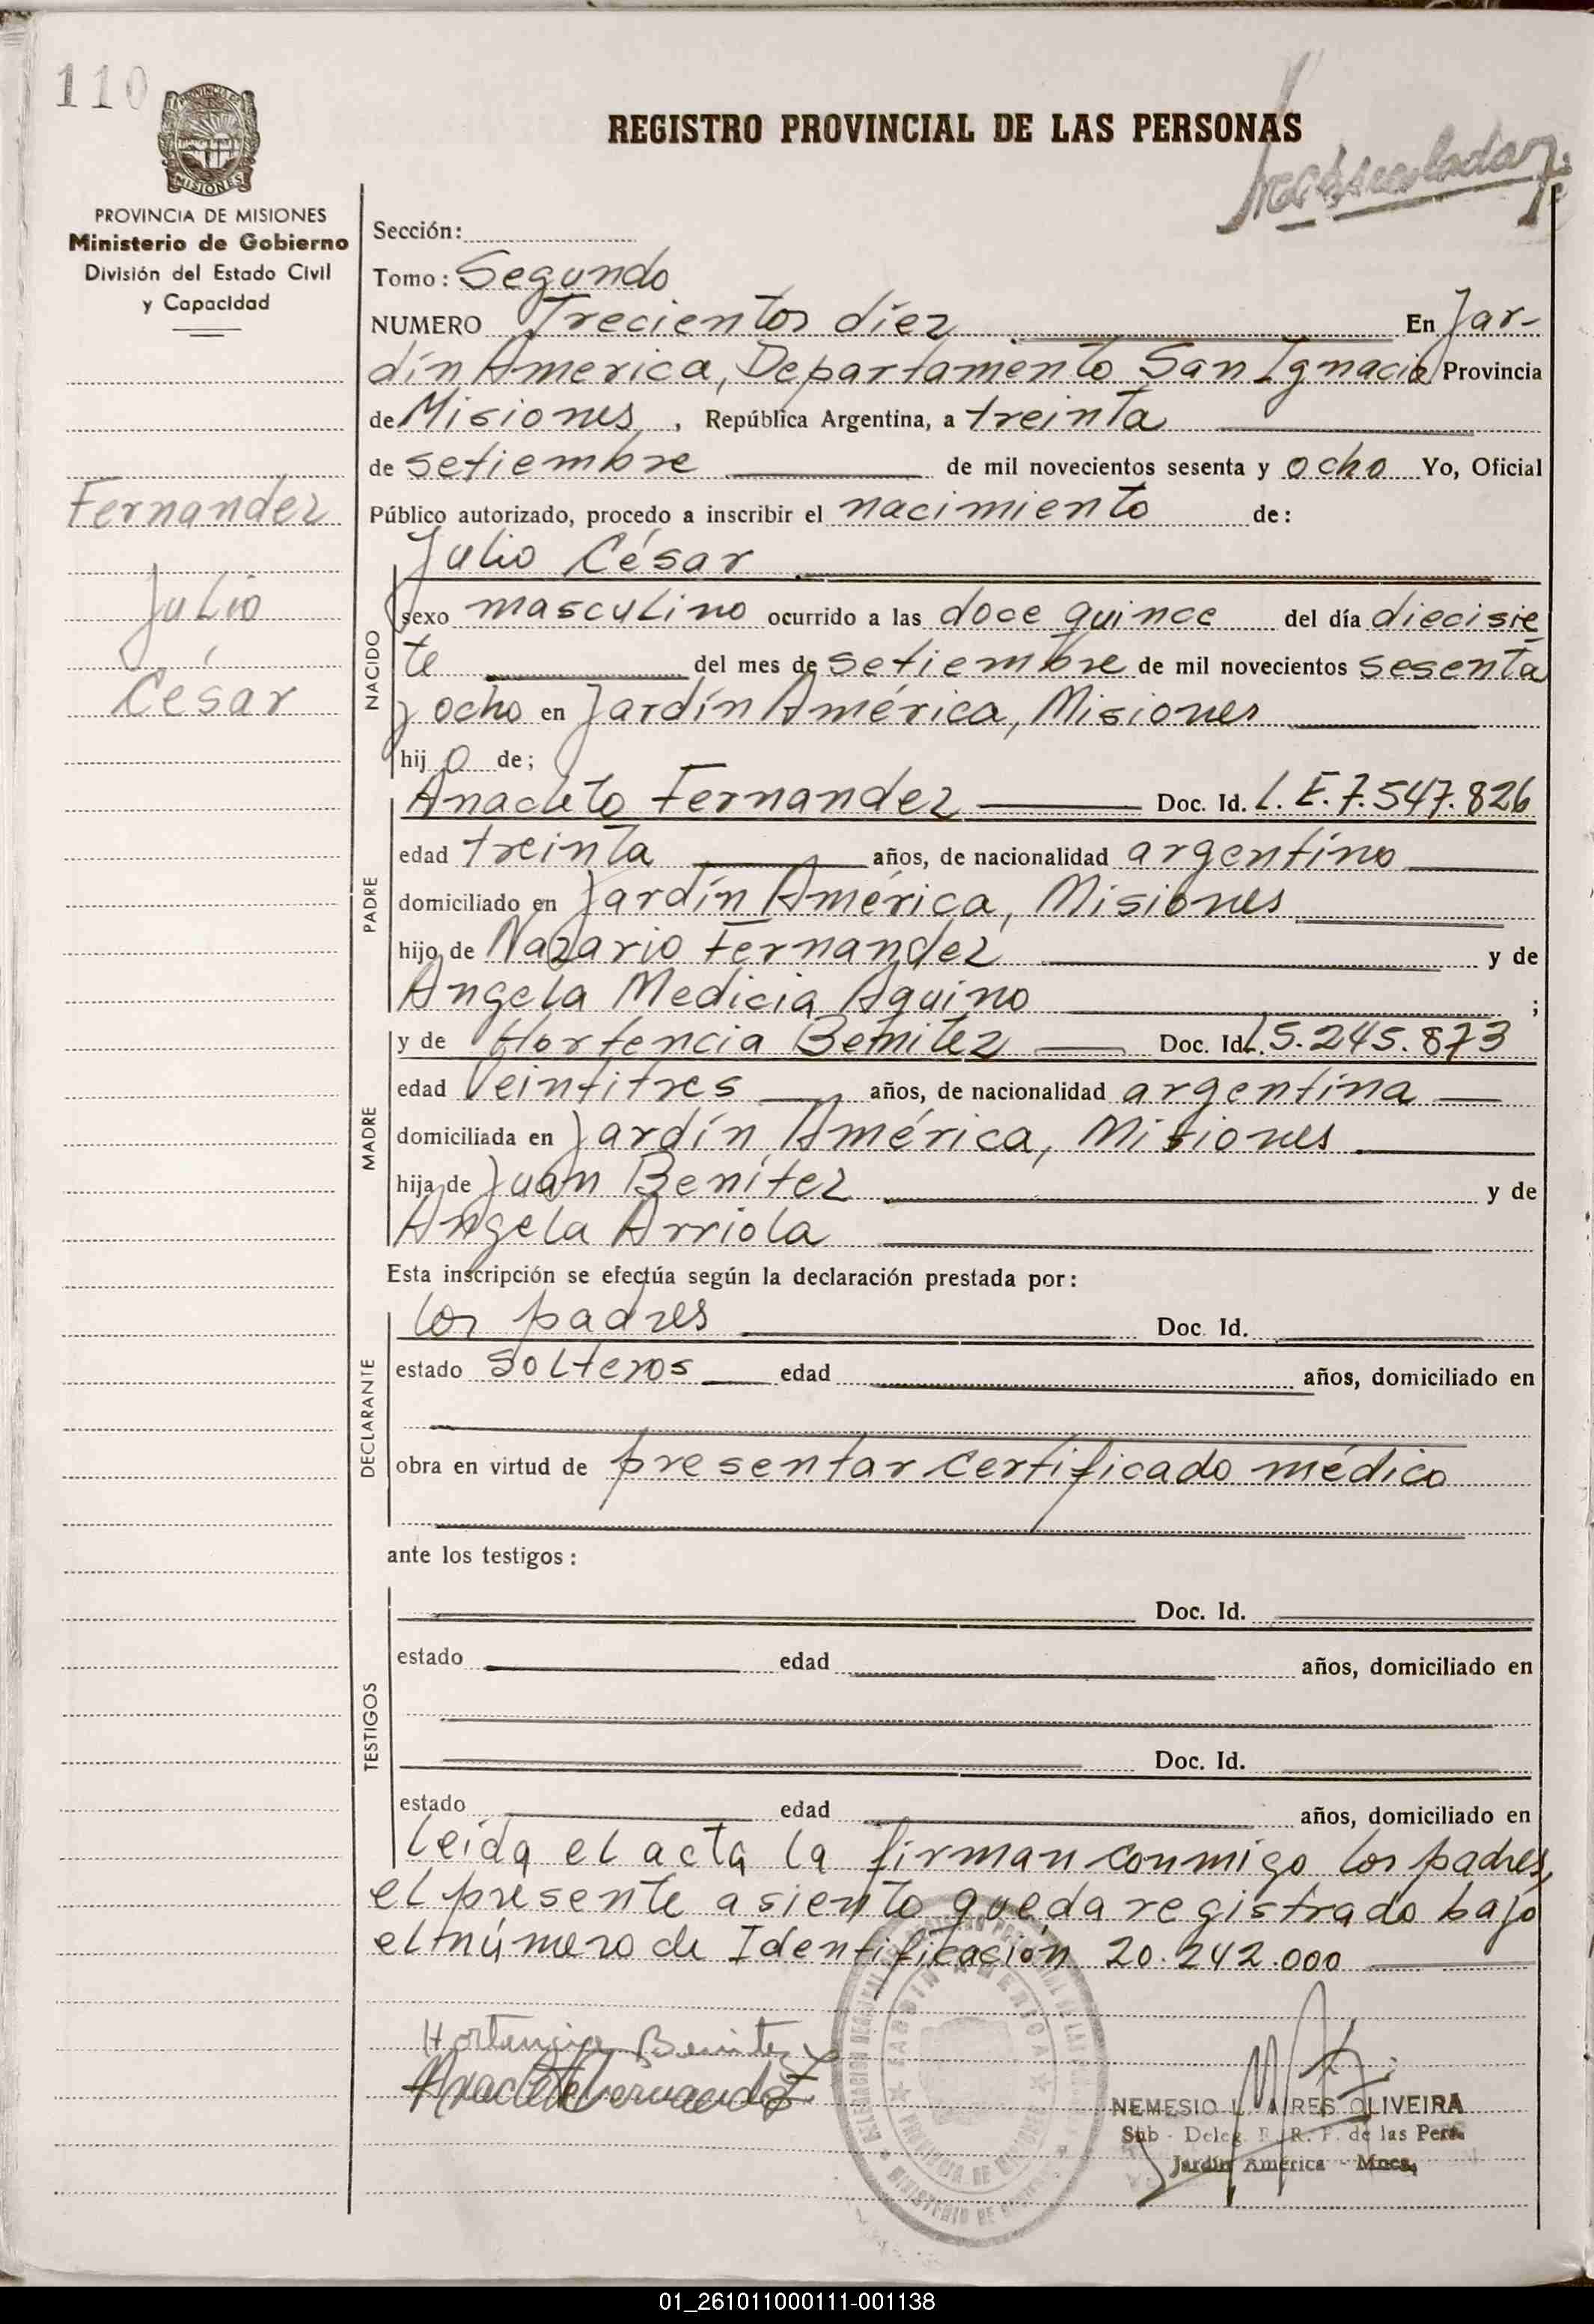 110
REGISTRO PROVINCIAL DE LAS PERSONAS
PROVINCIA DE MISIONES
Ministerio de Gobierno
División del Estado Civil
y Capacidad
Fernandez
Julio
César
Sección:
Tomo: Segundo
NUMERO Trecientos diez En Jar-
dín America, Departamento San Ignacio Provincia
de Misiones, República Argentina, a treinta
de setiembre de mil novecientos sesenta y ocho Yo, Oficial
Público autorizado, procedo a inscribir el nacimiento de:
NACIDO
Julio César
sexo masculino ocurrido a las doce quince del día diecisie-
te del mes de setiembre de mil novecientos sesenta
y ocho en Jardín América, Misiones
hijo de;
PADRE
Anacleto Fernandez Doc. Id. L.E.7.547.826
edad treinta años, de nacionalidad argentino
domiciliado en Jardín América, Misiones
hijo de Nazario Fernandez y de
Angela Medicia Aquino ;
MADRE
y de Hortencia Benitez Doc. Id. 5.245.873
edad Veintitres años, de nacionalidad argentina
domiciliada en Jardín América, Misiones
hija de Juan Benítez y de
Angela Arriola
Esta inscripción se efectúa según la declaración prestada por:
DECLARANTE
los padres Doc. Id.
estado solteros edad años, domiciliado en
obra en virtud de presentar certificado médico
ante los testigos:
TESTIGOS
Doc. Id.
estado edad años, domiciliado en
Doc. Id.
estado edad años, domiciliado en
Leida el acta la firman conmigo los padres,
el presente asiento queda registrado bajo
el número de Identificación 20.242.000
Hortencia Benitez
Anacleto Fernandez
NEMESIO L. OLIVEIRA
Sub - Deleg. R. P. de las Pers.
Jardín América - Mnes.
JARDIN AMERICA
PROVINCIA DE MISIONES
MINISTERIO DE
01_261011000111-001138